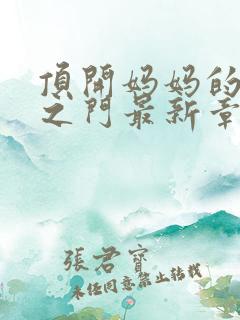 頂開妈妈的
之门最新章
張君寶
未任同意禁止转载